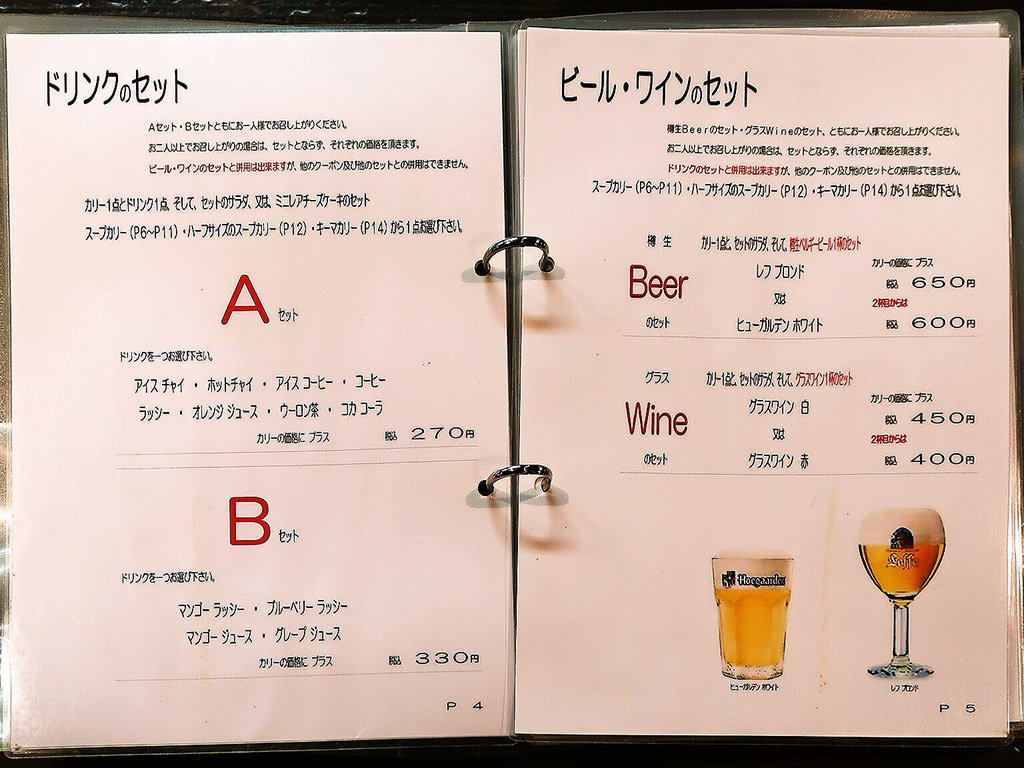 ドリンクのセット
Aセット・Bセットともにお一人様でお召し上がりください。
お二人以上でお召し上がりの場合は、セットとならず、それぞれの価格を頂きます。
ビール・ワインのセットと併用は出来ますが、他のクーポン及び他のセットとの併用はできません。
カリー1点とドリンク1点、そして、セットのサラダ、又は、ミニレアチーズケーキのセット
スープカリー(P6~P11)・ハーフサイズのスープカリー(P12)・キーマカリー(P14)から1点お選び下さい。
A セット
ドリンクを一つお選び下さい。
アイス チャイ ・ ホットチャイ ・ アイス コーヒー ・ コーヒー
ラッシー ・ オレンジ ジュース ・ ウーロン茶 ・ コカ コーラ
カリーの価格に プラス 税込 270円
B セット
ドリンクを一つお選び下さい。
マンゴー ラッシー ・ ブルーベリー ラッシー
マンゴー ジュース ・ グレープ ジュース
カリーの価格に プラス 税込 330円
P 4
ビール・ワインのセット
樽生Beerのセット・グラスWineのセット、ともにお一人様でお召し上がりください。
お二人以上でお召し上がりの場合は、セットとならず、それぞれの価格を頂きます。
ドリンクのセットと併用は出来ますが、他のクーポン及び他のセットとの併用はできません。
スープカリー(P6~P11)・ハーフサイズのスープカリー(P12)・キーマカリー(P14)から1点お選び下さい。
樽 生 カリー1点と、セットのサラダ、そして、樽生ベルギービール1杯のセット
Beer レフ ブロンド カリーの価格に プラス 税込 650円
又は 2杯目からは
のセット ヒューガルデン ホワイト 税込 600円
グラス カリー1点と、セットのサラダ、そして、グラスワイン1杯のセット
Wine グラスワイン 白 カリーの価格に プラス 税込 450円
又は 2杯目からは
のセット グラスワイン 赤 税込 400円
Hoegaarden
Leffe
ヒューガルデン ホワイト
レフ ブロンド
P 5